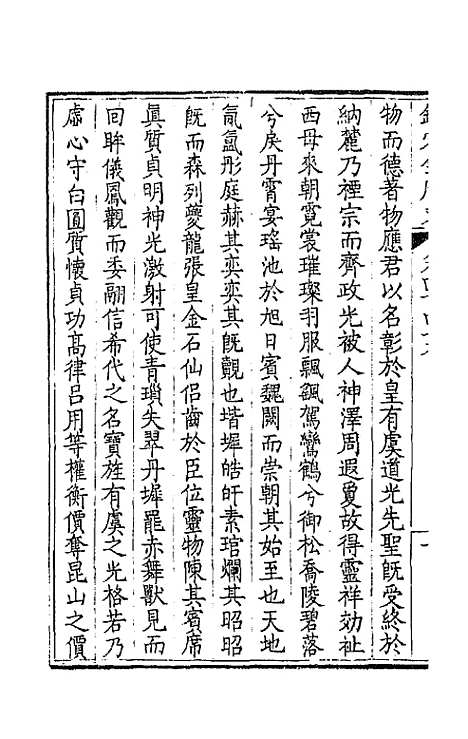 物而德著物應君以名彰於皇有虞道光先聖既受終於
納麓乃禋宗而齊政光被人神澤周遐敻故得靈祥効祉
西母來朝霓裳璀璨羽服飄颻駕鸞鶴兮御松喬陵碧落
兮戾丹霄宴瑤池於旭日賓魏闕而崇朝其始至也天地
氤氳形庭赫其奕奕其既覿也堦墀皓旰素琯爛其昭昭
既而森列夔龍張皇金石仙侣齒於臣位靈物陳其賓席
真質貞明神光激射可使青瑣失翠丹墀罷赤舞獸見而
回眸儀鳳觀而委翮信希代之名寶旌有虞之光格若乃
虛心守白圓質懷貞功髙律吕用等權衡價奪昆山之價